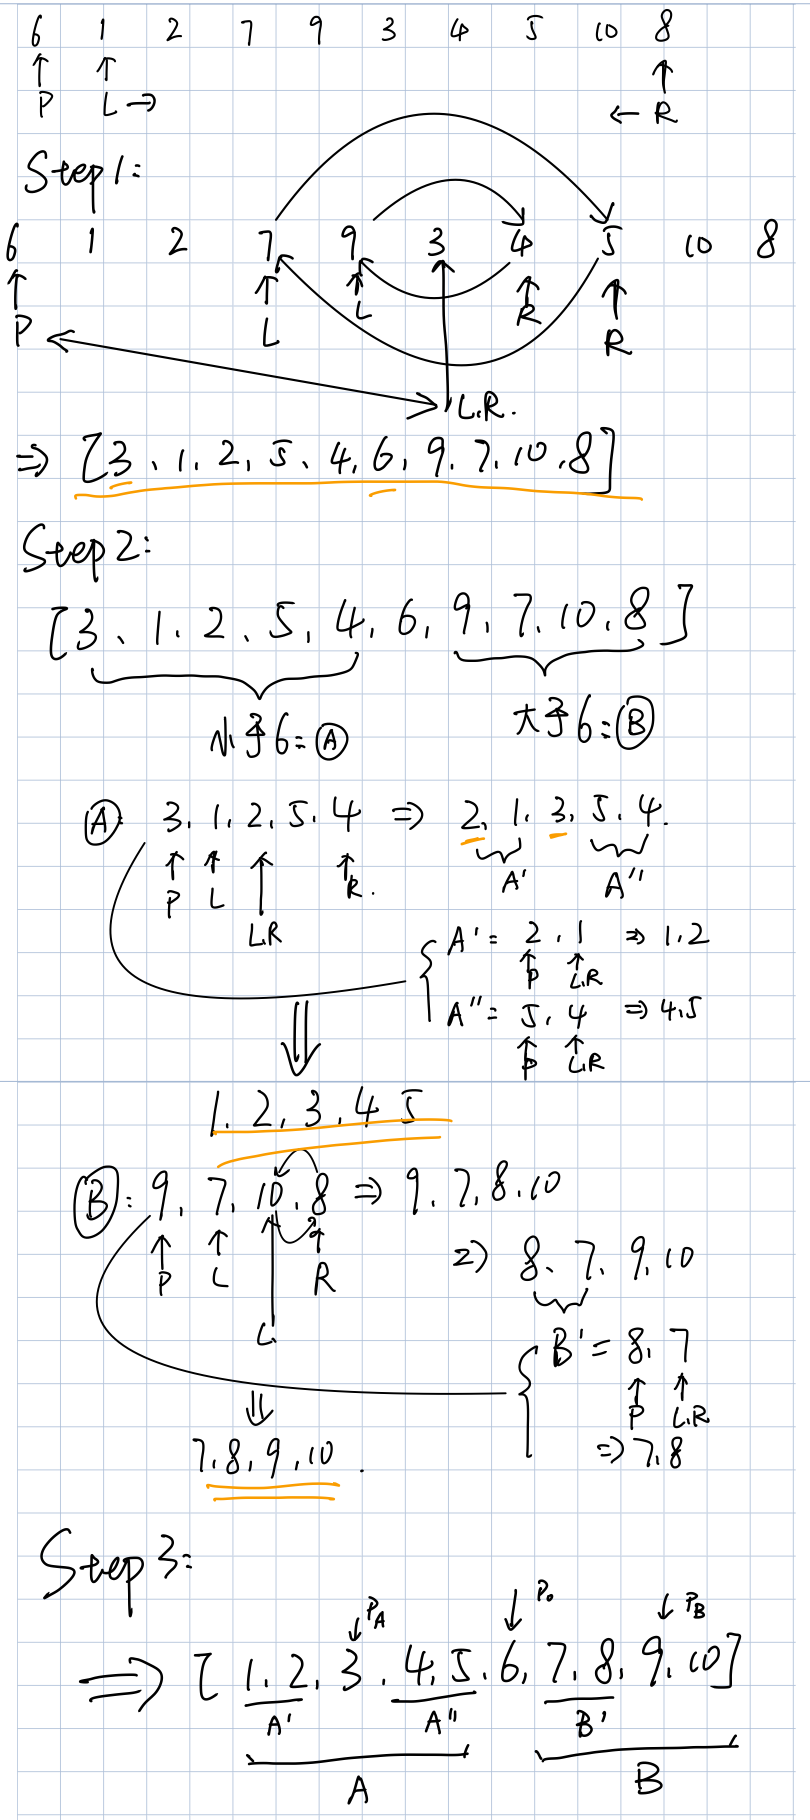 6 1 2 7 9 3 4 5 10 8
P L → ← R
Step1:
6 1 2 7 9 3 4 5 10 8
P L L R R
L.R.
⇒ [3、1、2、5、4、6、9、7、10、8]
Step2:
[3、1、2、5、4、6、9、7、10、8]
小于6=Ⓐ 大于6=Ⓑ
Ⓐ: 3、1、2、5、4 ⇒ 2、1、3、5、4.
P L L.R R. A' A''
A' = 2、1 ⇒ 1、2
P L.R
A'' = 5、4 ⇒ 4、5
P L.R
1、2、3、4 5
Ⓑ: 9、7、10、8 ⇒ 9、7、8、10
P L R ⇒ 8、7、9、10
L
B' = 8、7
P L.R
⇒ 7、8
7、8、9、10.
Step3:
PA P0 PB
⇒ [1、2、3、4、5、6、7、8、9、10]
A' A'' B'
A B